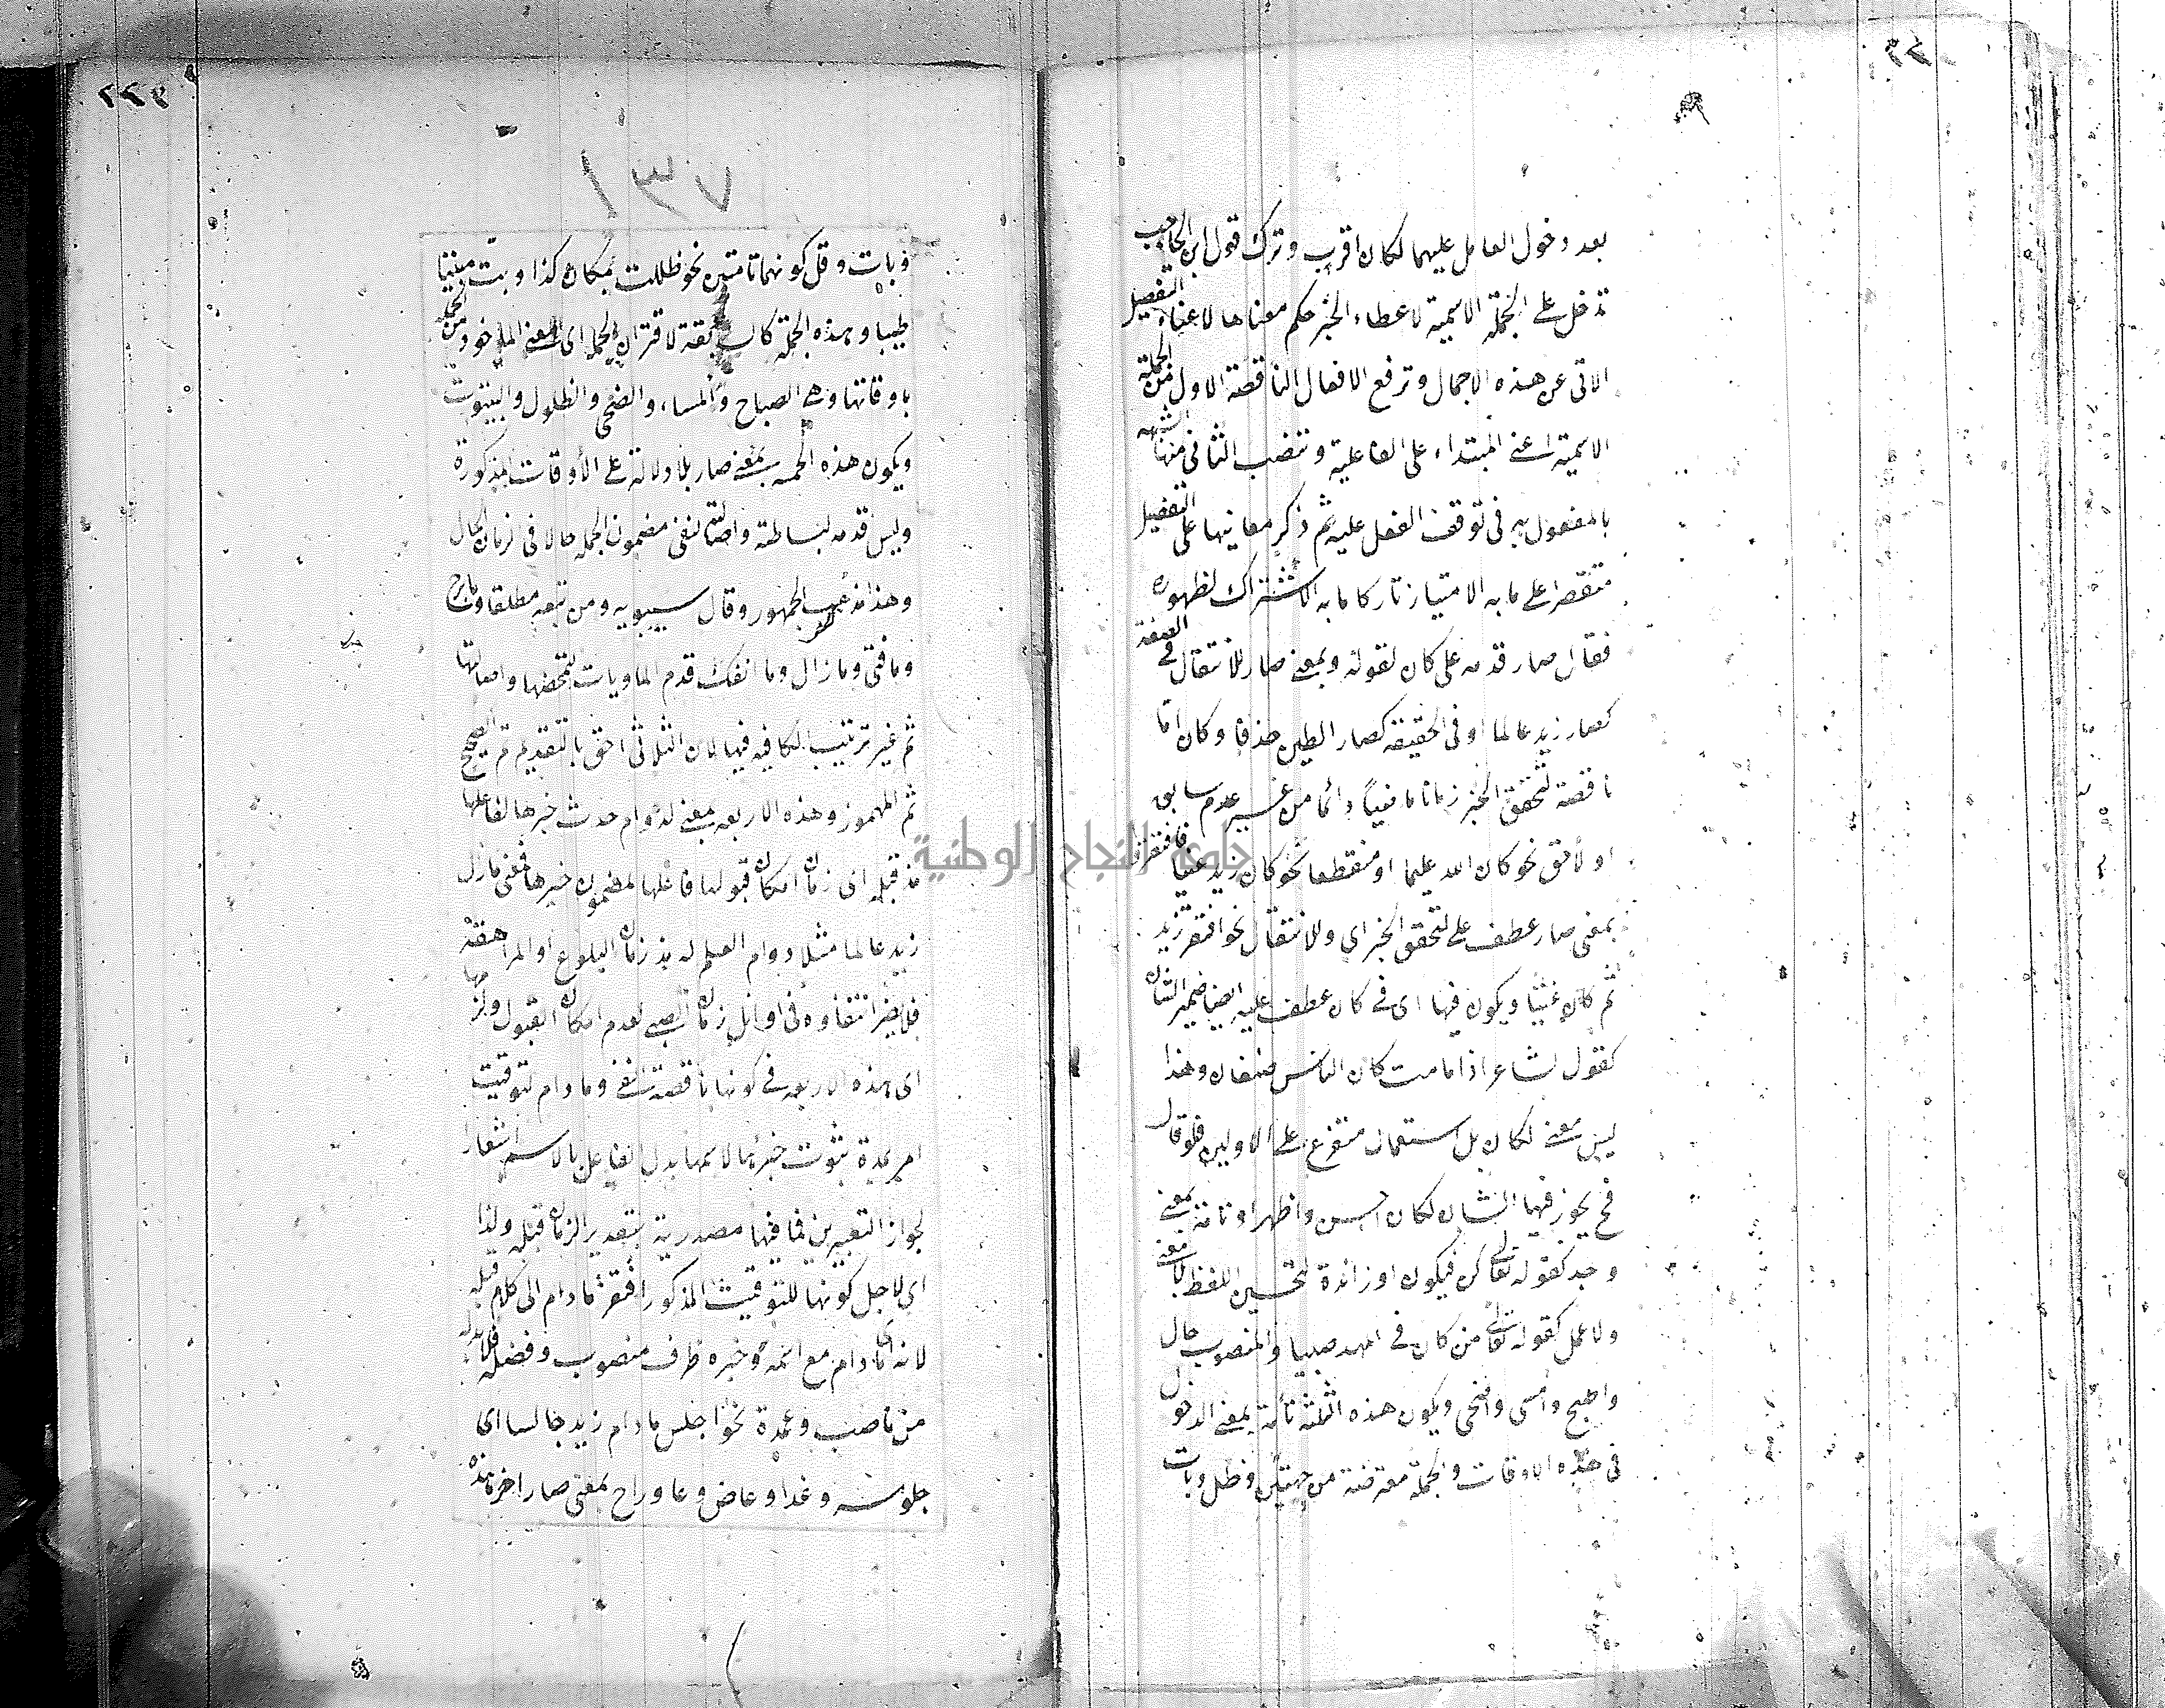 بعد دخول العامل عليهما لكان اقرب وترك قول ابن الحاجب
تدخل على الجملة الاسمية لاعطاء الخبر حكم معناها لاغناء التفصيل
الاتى عن هذه الاجمال وترفع الافعال الناقصة الاول من الجملة
الاسمية اعنى المبتداء على الفاعلية وتنصب الثانى منها لشبهه
بالمفعول به فى توقف الفعل عليه ثم ذكر معانيها على التفصيل
مقتصرا على ما به الامتياز تاركا ما به الاشتراك لظهوره
فقال صار قدمه على كان لقوله وبمعنى صار للانتقال فى الصفة
كصار زيد عالما او فى الحقيقة كصار الطين خذفا وكان اما
ناقصة لتحقق الخبر زمانا ماضيا دائما من غير عدم سابق
او لاحق نحو كان الله عليما او منقطعا نحو كان زيد غنيا فافتقر
بمعنى صار عطف على لتحقق الخبر اى وللانتقال نحو افتقر زيد
ثم كان غنيا ويكون فيها اى فى كان عطف عليه ايضا ضمير الشان
كقول الشاعر اذا ما مت كان الناس صنفان وهذا
ليس معنى لكان بل استعمال متفرع على الاولين فلو قال
فح يجوز فيها الشان لكان احسن واظهر او تامة بمعنى
وجد كقوله تعالى كن فيكون او زائدة لتحسين اللفظ بلا معنى
ولا عمل كقوله تعالى من كان فى المهد صبيا والمنصوب حال
واصبح وامسى واضحى ويكون هذه الثلثة تامة بمعنى الدخول
فى هذه الاوقات والجملة معترضة من جهتين وظل وبات
٧٣١
وبات وقل كونهما تامتين نحو ظللت بمكان كذا وبت مبيتا
طيبا وهذه الجملة كالسابقة لاقتران الجملة اى المعنى الماخوذ من الجملة
باوقاتها وهى الصباح والمساء والضحى والظلول والبيتوتة
ويكون هذه الخمسة بمعنى صار بلا دلالة على الأوقات المذكورة
وليس قدمه لبساطته واصالته لنفى مضمون الجملة حالا فى زمان الحال
وهذا مذهب الجمهور وقال سيبويه ومن تبعه مطلقا وما برح
وما فتئ وما زال وما انفك قدم الماويات لتمحضها واصالتها
ثم غير ترتيب الكافيه فيها لان الثلاثى احق بالتقديم ثم الصحيح
ثم المهموز وهذه الاربعه بمعنى لدوام حدث خبرها لفاعلها
مذ قبله اى زمان امكان قبولها فاعلها لمضمون خبرها فمعنى مازال
زيد عالما مثلا دوام العلم له مذ زمان البلوغ او المراهقة
فلا يضر انتفاؤه فى اوائل زمان الصبى لعدم امكان القبول ولزمها
اى هذه الاربعه فى كونها ناقصة النفى وما دام لتوقيت
امر بمدة ثبوت خبرها لاسمها بدل الفاعل بالاسم اشعارا
لجواز التعبيرين فما فيها مصدرية بتقدير الزمان قبله ولذا
اى لاجل كونها للتوقيت المذكور افتقر ما دام الى كلام قبله
لانه اى ما دام مع اسمه وخبره ظرف منصوب وفضلة فلا بد له
من ناصب وعمدة نحو اجلس ما دام زيد جالسا اى
جلوسه وغدا وعاض وعا وراح بمعنى صار اخر هذه
جامعة النجاح الوطنية